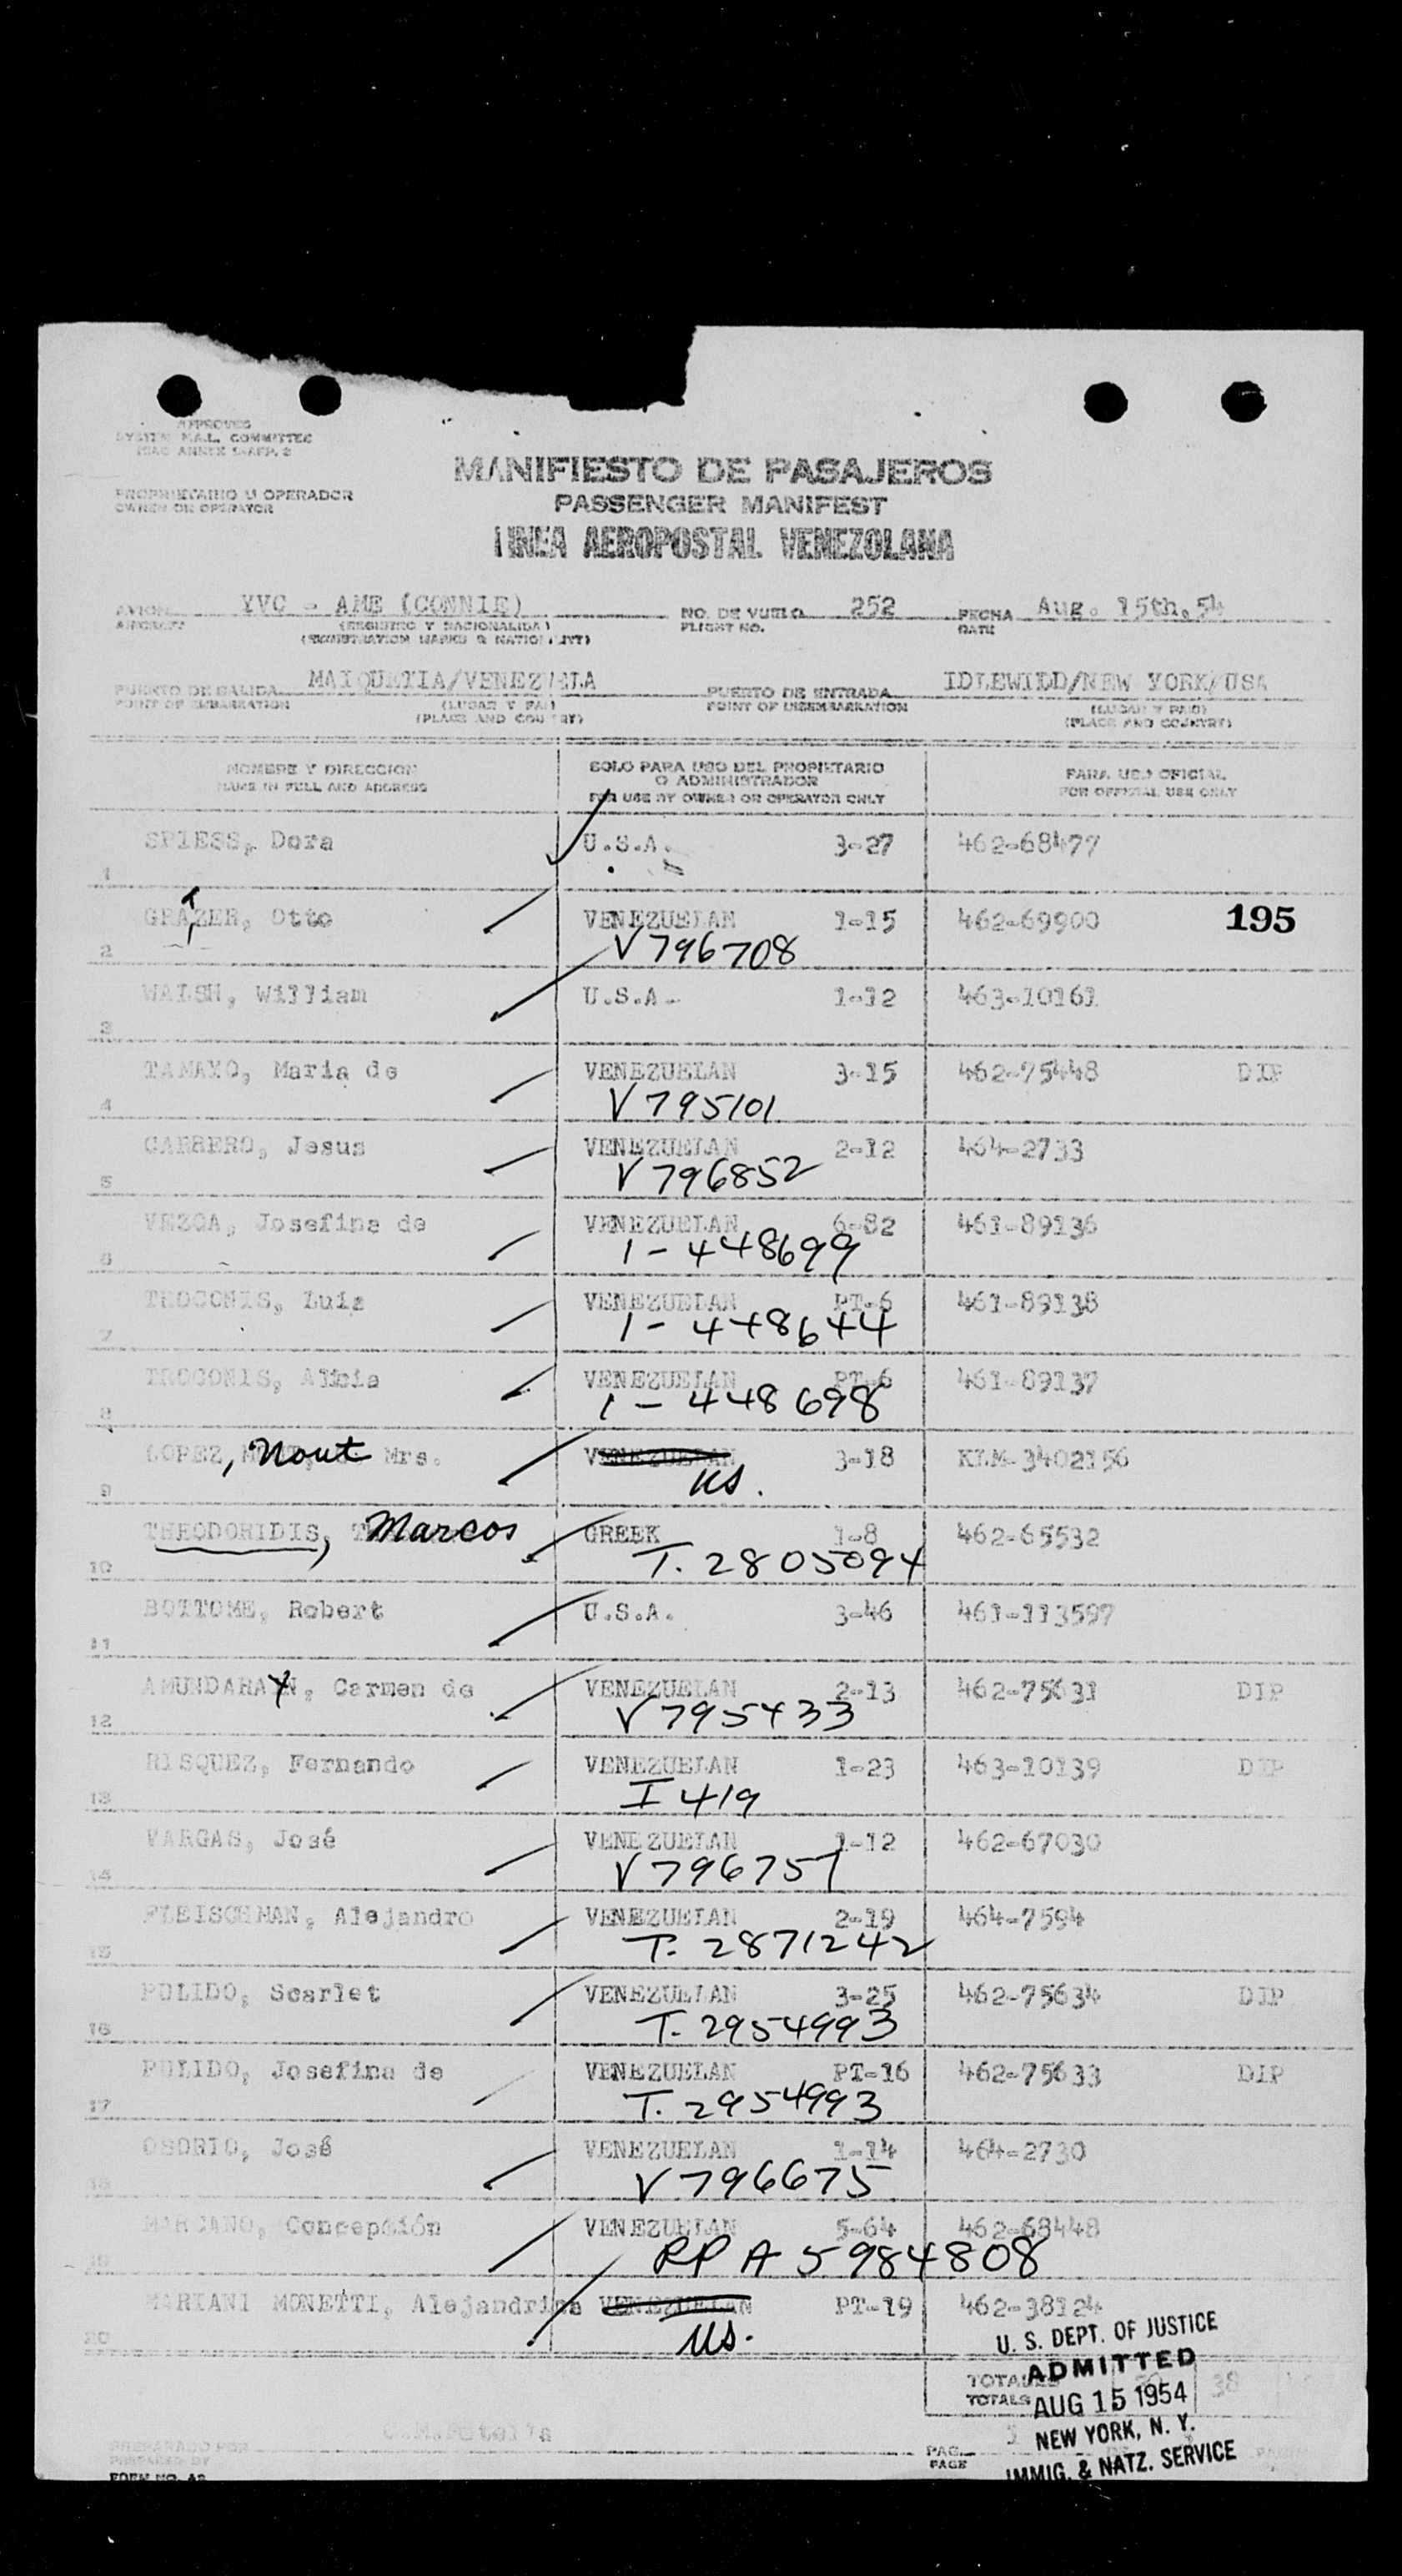 APPROVED
SYSTEM F.A.L. COMMITTEE
ICAO ANNEX 9-APP. 2
MANIFIESTO DE PASAJEROS
PROPRIETARIO U OPERADOR
OWNER OR OPERATOR
PASSENGER MANIFEST
LINEA AEROPOSTAL VENEZOLANA
AVION YVC - AME (CONNIE) NO. DE VUELO 252 FECHA Aug. 15th. 54
AIRCRAFT (REGISTRO Y NACIONALIDAD) FLIGHT NO. DATE
(REGISTRATION MARKS & NATIONALITY)
PUERTO DE SALIDA MAIQUETIA/VENEZUELA PUERTO DE ENTRADA IDLEWILD/NEW YORK/USA
POINT OF EMBARKATION (LUGAR Y PAIS) POINT OF DISEMBARKATION (LUGAR Y PAIS)
(PLACE AND COUNTRY) (PLACE AND COUNTRY)
NOMBRE Y DIRECCION SOLO PARA USO DEL PROPIETARIO PARA USO OFICIAL
NAME IN FULL AND ADDRESS O ADMINISTRADOR FOR OFFICIAL USE ONLY
FOR USE BY OWNER OR OPERATOR ONLY
SPIESS, Dora U.S.A. 3-27 462-68477
1
GRATZER, Otto VENEZUELAN 1-15 462-69900 195
2 V796708
WALSH, William U.S.A. 1-12 463-10161
3
TAMAYO, Maria de VENEZUELAN 3-15 462-75448 DIP
4 V795101
GARBERO, Jesus VENEZUELAN 2-12 464-2733
5 V796852
VEZGA, Josefina de VENEZUELAN 6-82 461-89136
6 1-448699
TROCONIS, Luis VENEZUELAN PT-6 461-89138
7 1-448644
TROCONIS, Alicia VENEZUELAN PT-6 461-89137
8 1-448698
LOPEZ, Nout Mrs. VENEZUELAN 3-18 KLM-3402156
9 US.
THEODORIDIS, Marcos GREEK 1-8 462-65532
10 T. 2805094
BOTTOME, Robert U.S.A. 3-46 461-113597
11
AMUNDARAYN, Carmen de VENEZUELAN 2-13 462-75631 DIP
12 V795433
RISQUEZ, Fernando VENEZUELAN 1-23 463-10139 DIP
13 I 419
VARGAS, José VENEZUELAN 1-12 462-67030
14 V796751
FLEISCHMAN, Alejandro VENEZUELAN 2-19 464-7594
15 T. 2871242
PULIDO, Scarlet VENEZUELAN 3-25 462-75634 DIP
16 T. 2954993
PULIDO, Josefina de VENEZUELAN PT-16 462-75633 DIP
17 T. 2954993
OSORIO, José VENEZUELAN 1-14 464-2730
18 V796675
MARCANO, Concepción VENEZUELAN 5-64 462-68448
19 RP A 5984808
MARIANI MONETTI, Alejandrina VENEZUELAN PT-19 462-38124
20 US.
U. S. DEPT. OF JUSTICE
ADMITTED
TOTALES 38
TOTALS AUG 15 1954
NEW YORK, N. Y.
IMMIG. & NATZ. SERVICE
PREPARADO POR
PREPARED BY
PAG.
PAGE
FORM NO.